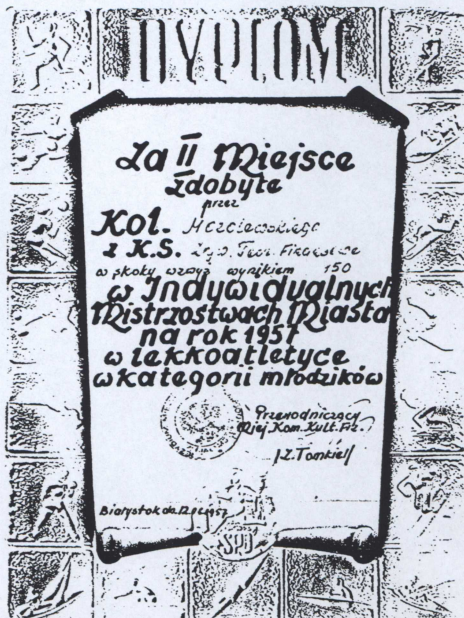 DYPLOM
Za II Miejsce
zdobyte
przez
Kol.
z K.S.
w skoku wzwyż wynikiem 150
w Indywidualnych
Mistrzostwach Miasta
na rok 1957
w lekkoatletyce
w kategorii młodzików
Przewodniczący
Miej. Kom. Kult. Fiz.
/Z. Tomkiel/
Białystok dn. 12